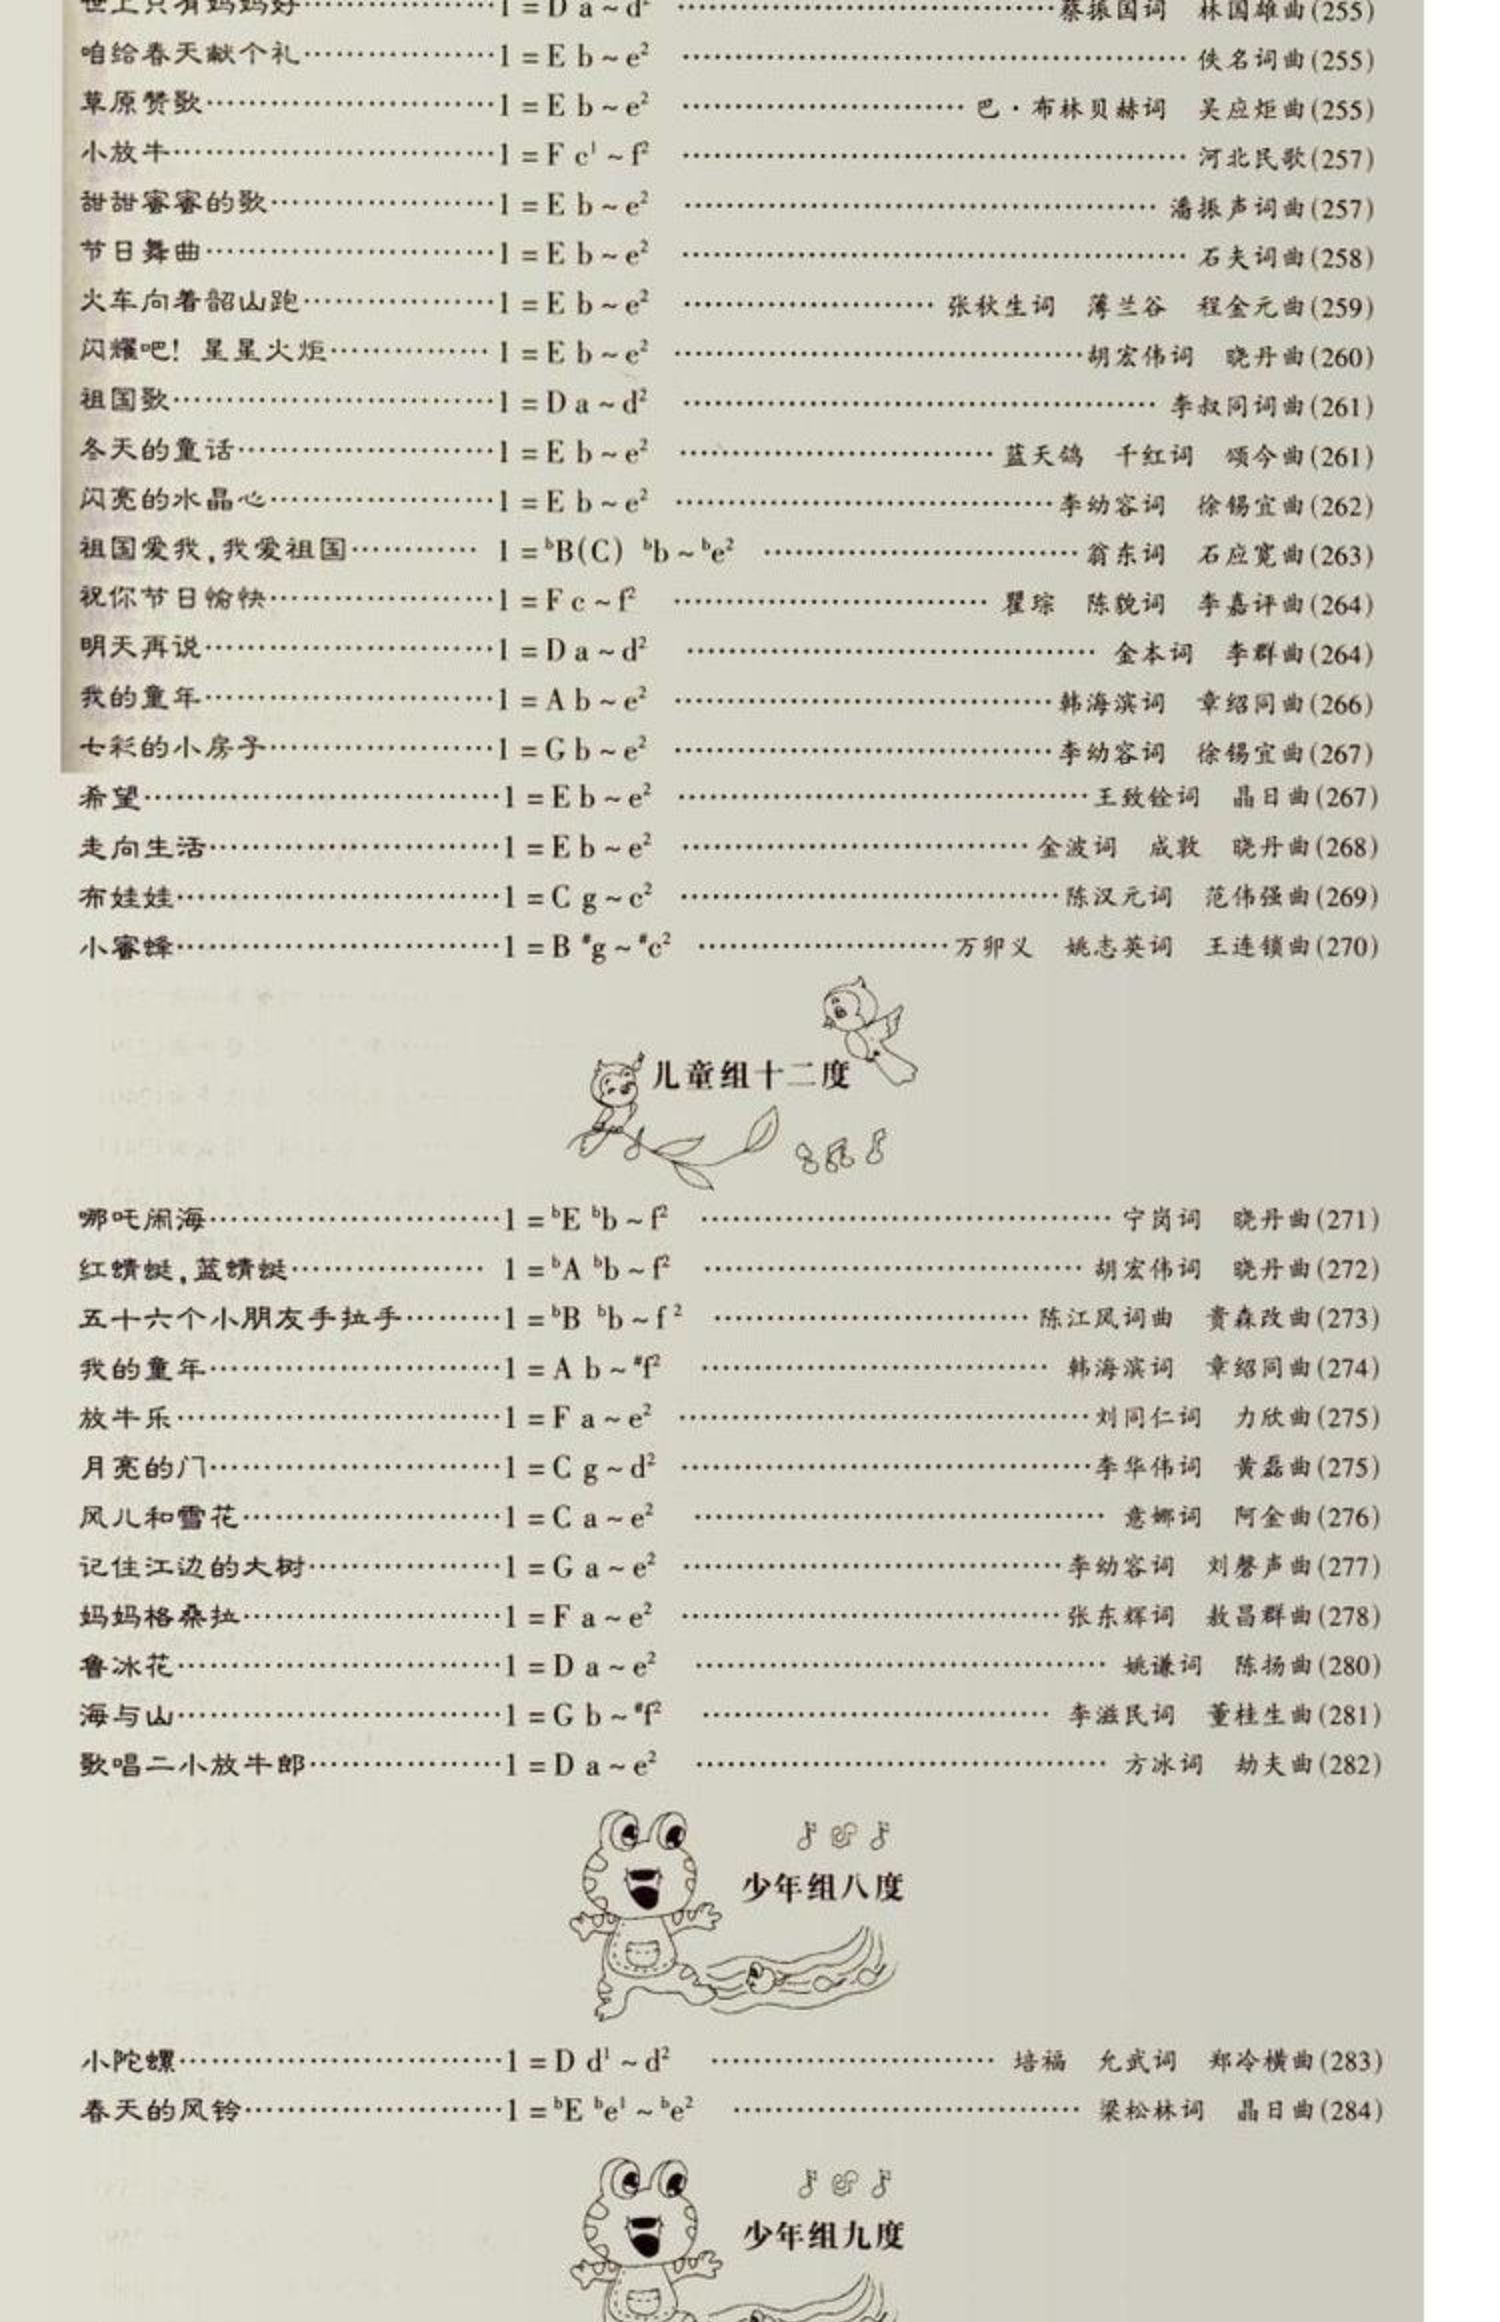 世上只有妈妈好…………………1=D a~d² …………………………………蔡振国词 林国雄曲(255)
咱给春天献个礼…………………1=E b~e² …………………………………佚名词曲(255)
草原赞歌…………………1=E b~e² …………………………………巴·布林贝赫词 吴应炬曲(255)
小放牛…………………1=F c¹~f² …………………………………河北民歌(257)
甜甜蜜蜜的歌…………………1=E b~e² …………………………………潘振声词曲(257)
节日舞曲…………………1=E b~e² …………………………………石夫词曲(258)
火车向着韶山跑…………………1=E b~e² …………………………………张秋生词 薄兰谷 程金元曲(259)
闪耀吧!星星火炬…………………1=E b~e² …………………………………胡宏伟词 晓丹曲(260)
祖国歌…………………1=D a~d² …………………………………李叔同词曲(261)
冬天的童话…………………1=E b~e² …………………………………蓝天鸽 千红词 颂今曲(261)
闪亮的水晶心…………………1=E b~e² …………………………………李幼容词 徐锡宜曲(262)
祖国爱我,我爱祖国…………………1=ᵇB(C) ᵇb~ᵇe² …………………………………翁东词 石应宽曲(263)
祝你节日愉快…………………1=F c~f² …………………………………瞿琮 陈貌词 李嘉评曲(264)
明天再说…………………1=D a~d² …………………………………金本词 李群曲(264)
我的童年…………………1=A b~e² …………………………………韩海滨词 章绍同曲(266)
七彩的小房子…………………1=G b~e² …………………………………李幼容词 徐锡宜曲(267)
希望…………………1=E b~e² …………………………………王致铨词 晶日曲(267)
走向生活…………………1=E b~e² …………………………………金波词 成敦 晓丹曲(268)
布娃娃…………………1=C g~c² …………………………………陈汉元词 范伟强曲(269)
小蜜蜂…………………1=B #g~#c² …………………………………万卯义 姚志英词 王连锁曲(270)
儿童组十二度
哪吒闹海…………………1=ᵇE ᵇb~f² …………………………………宁岗词 晓丹曲(271)
红蜻蜓,蓝蜻蜓…………………1=ᵇA ᵇb~f² …………………………………胡宏伟词 晓丹曲(272)
五十六个小朋友手拉手…………………1=ᵇB ᵇb~f² …………………………………陈江风词曲 贵森改曲(273)
我的童年…………………1=A b~#f² …………………………………韩海滨词 章绍同曲(274)
放牛乐…………………1=F a~e² …………………………………刘同仁词 力欣曲(275)
月亮的门…………………1=C g~d² …………………………………李华伟词 黄磊曲(275)
风儿和雪花…………………1=C a~e² …………………………………意娜词 阿金曲(276)
记住江边的大树…………………1=G a~e² …………………………………李幼容词 刘磬声曲(277)
妈妈格桑拉…………………1=F a~e² …………………………………张东辉词 敖昌群曲(278)
鲁冰花…………………1=D a~e² …………………………………姚谦词 陈扬曲(280)
海与山…………………1=G b~#f² …………………………………李滋民词 董桂生曲(281)
歌唱二小放牛郎…………………1=D a~e² …………………………………方冰词 劫夫曲(282)
少年组八度
小陀螺…………………1=D d¹~d² …………………………………培福 允武词 郑冷横曲(283)
春天的风铃…………………1=ᵇE ᵇe¹~ᵇe² …………………………………梁松林词 晶日曲(284)
少年组九度